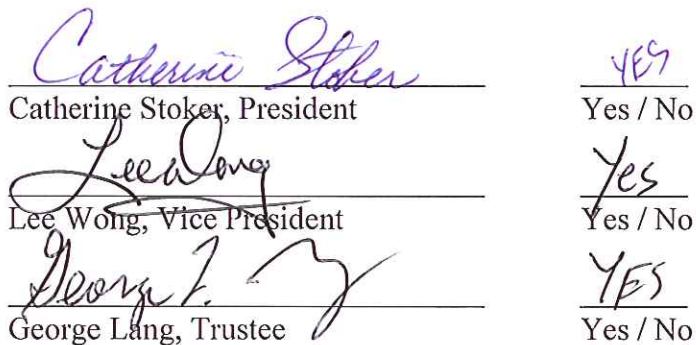 Catherine Stoker YES
Catherine Stoker, President Yes / No
Lee Wong Yes
Lee Wong, Vice President Yes / No
George F. Lang YES
George Lang, Trustee Yes / No